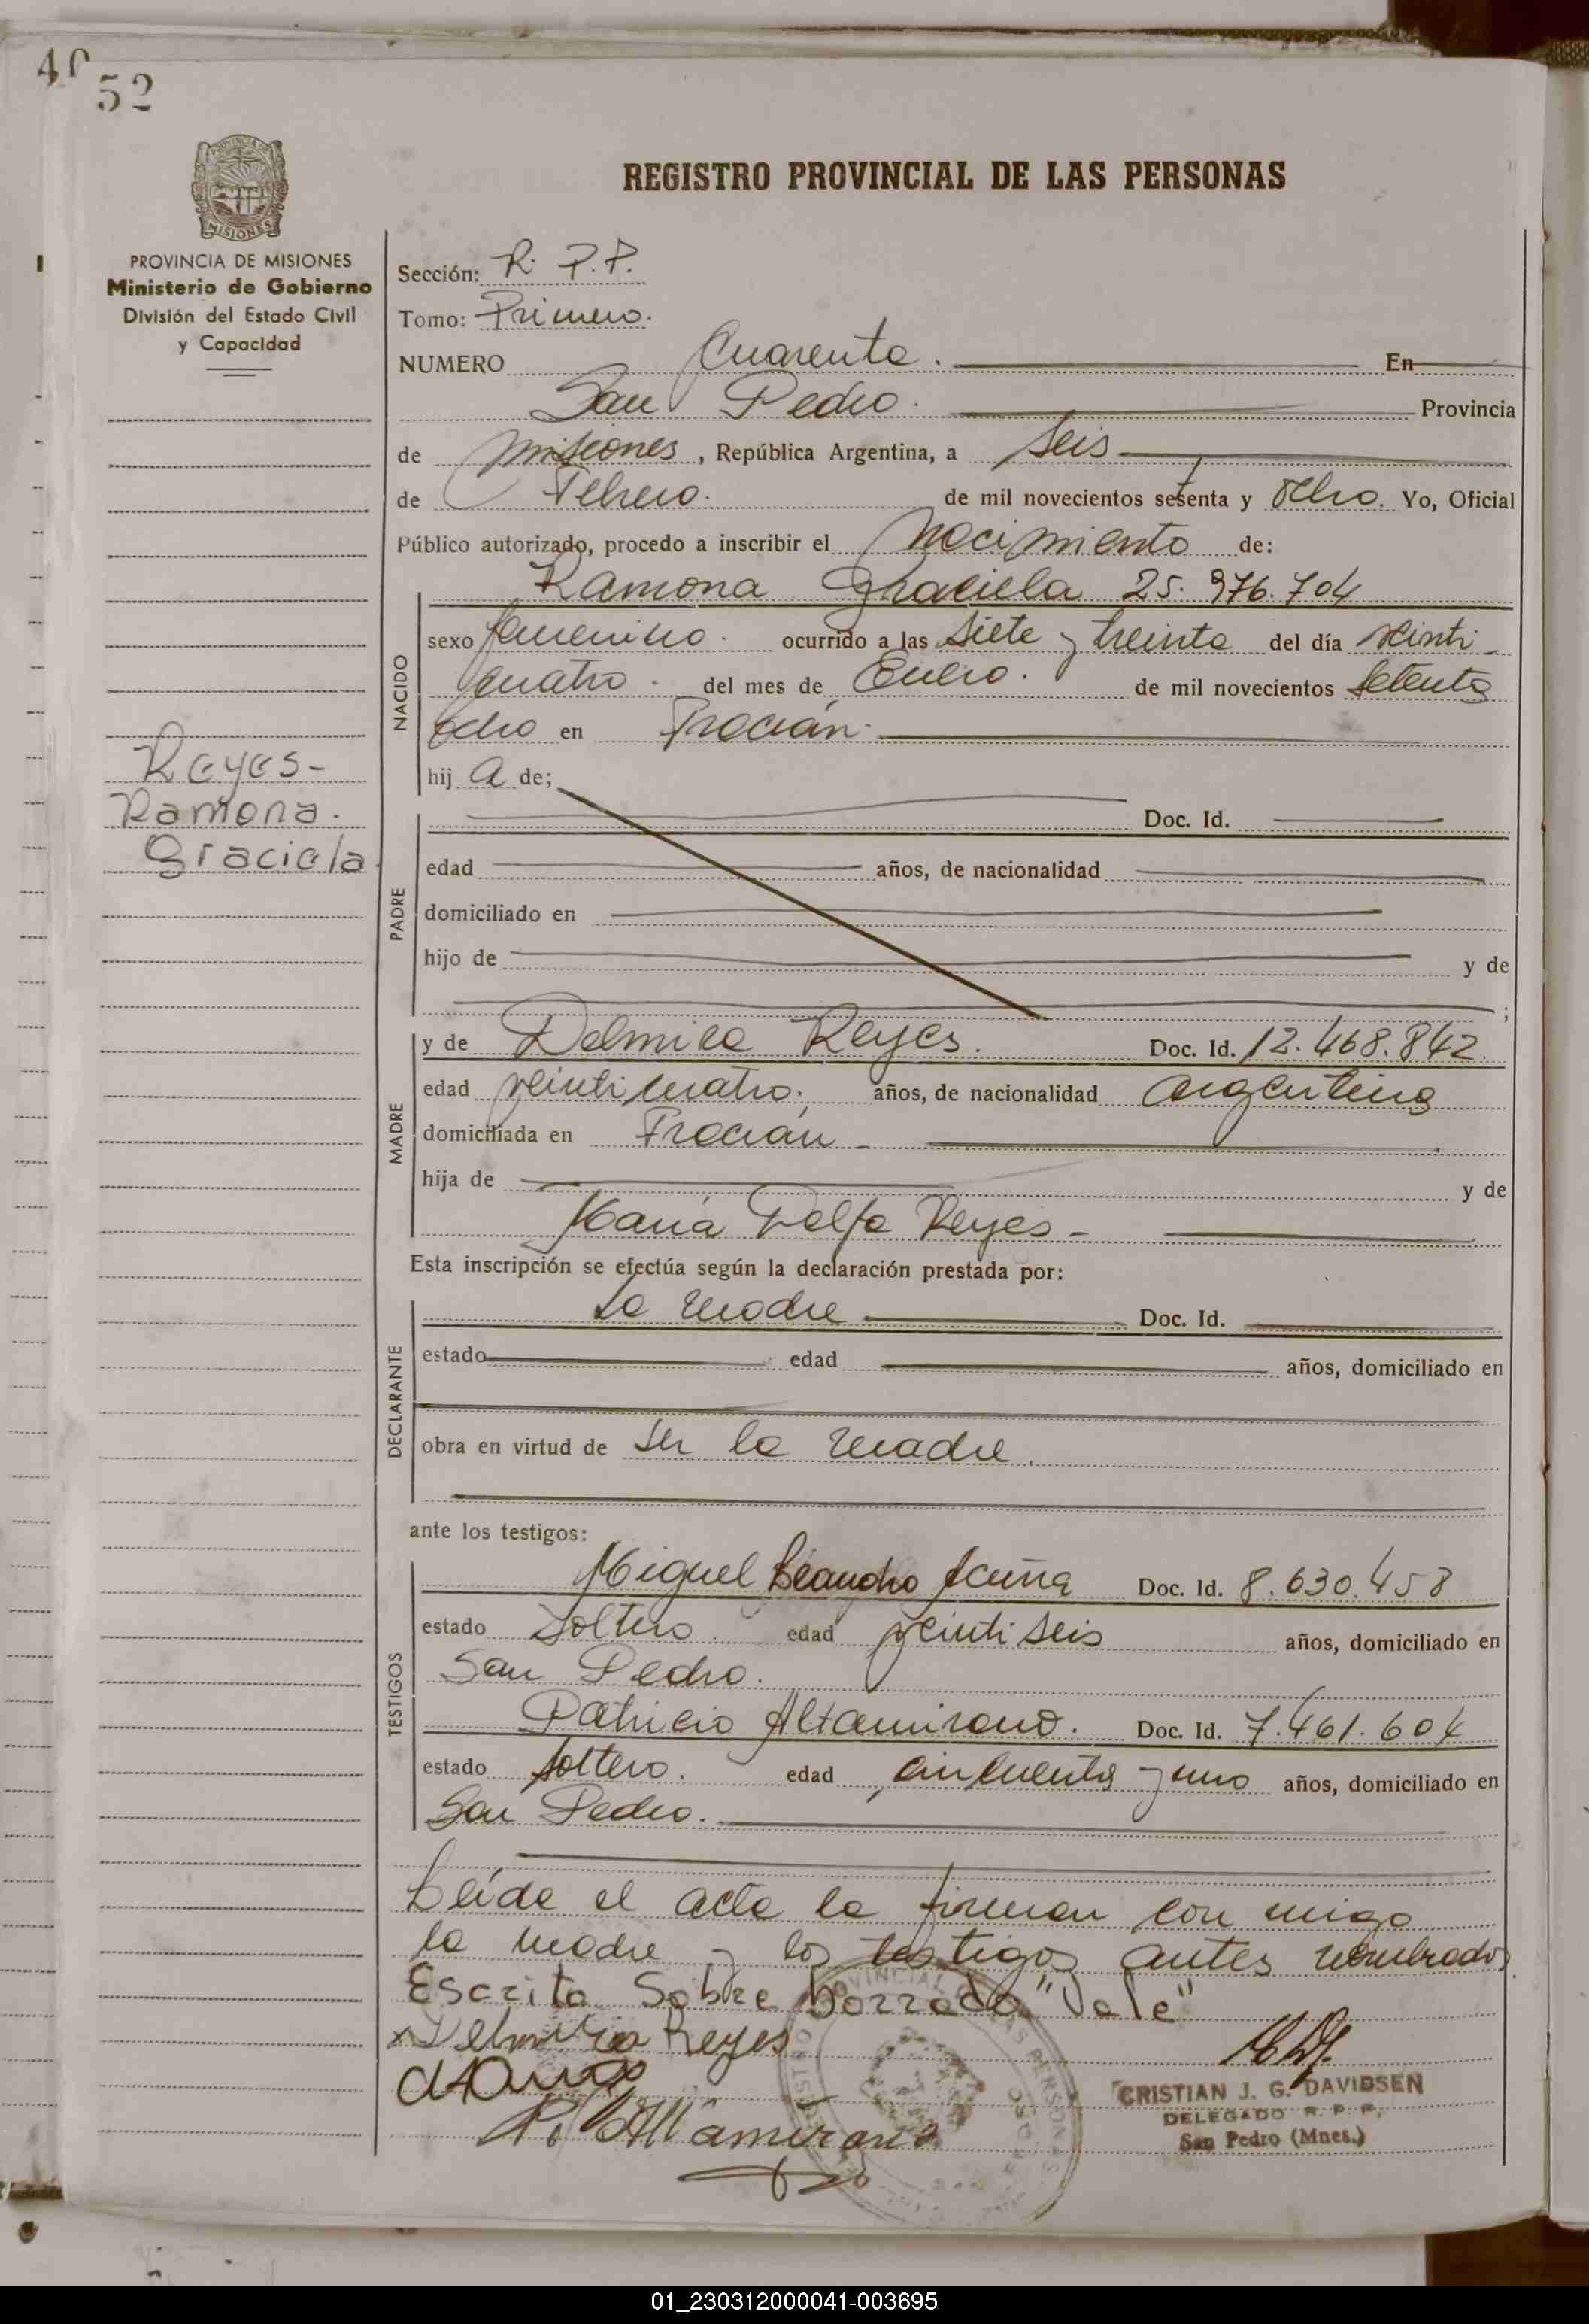 40
52
REGISTRO PROVINCIAL DE LAS PERSONAS
PROVINCIA DE MISIONES
Ministerio de Gobierno
División del Estado Civil
y Capacidad
Sección: R. P.P.
Tomo: Primero.
NUMERO Cuarenta. En
San Pedro. Provincia
de Misiones, República Argentina, a seis
de Febrero. de mil novecientos setenta y ocho. Yo, Oficial
Público autorizado, procedo a inscribir el nacimiento de:
Ramona Graciela 25.976.704
NACIDO
sexo femenino. ocurrido a las siete y treinta del día veinti
cuatro. del mes de Enero. de mil novecientos setenta
ocho en Fracrán.
hij a de;
Reyes-
Ramona.
Graciela.
PADRE
Doc. Id.
edad años, de nacionalidad
domiciliado en
hijo de y de
;
MADRE
y de Delmira Reyes. Doc. Id. 12.468.842.
edad veinticuatro. años, de nacionalidad argentina
domiciliada en Fracrán
hija de y de
María Reyes-
Esta inscripción se efectúa según la declaración prestada por:
DECLARANTE
La madre Doc. Id.
estado edad años, domiciliado en
obra en virtud de ser la madre.
ante los testigos:
TESTIGOS
Miguel Leandro Acuña Doc. Id. 8.630.458
estado soltero. edad veintiseis años, domiciliado en
San Pedro.
Patricio Altamirano. Doc. Id. 7.461.604
estado soltero. edad cincuenta y uno años, domiciliado en
San Pedro.
Leída el acta la firman con migo
la madre y los testigos antes nombrados
Escrito Sobre borrado "Vale"
x Delmira Reyes
P. Altamirano
CRISTIAN J. G. DAVIDSEN
DELEGADO R. P. P.
San Pedro (Mnes.)
01_230312000041-003695